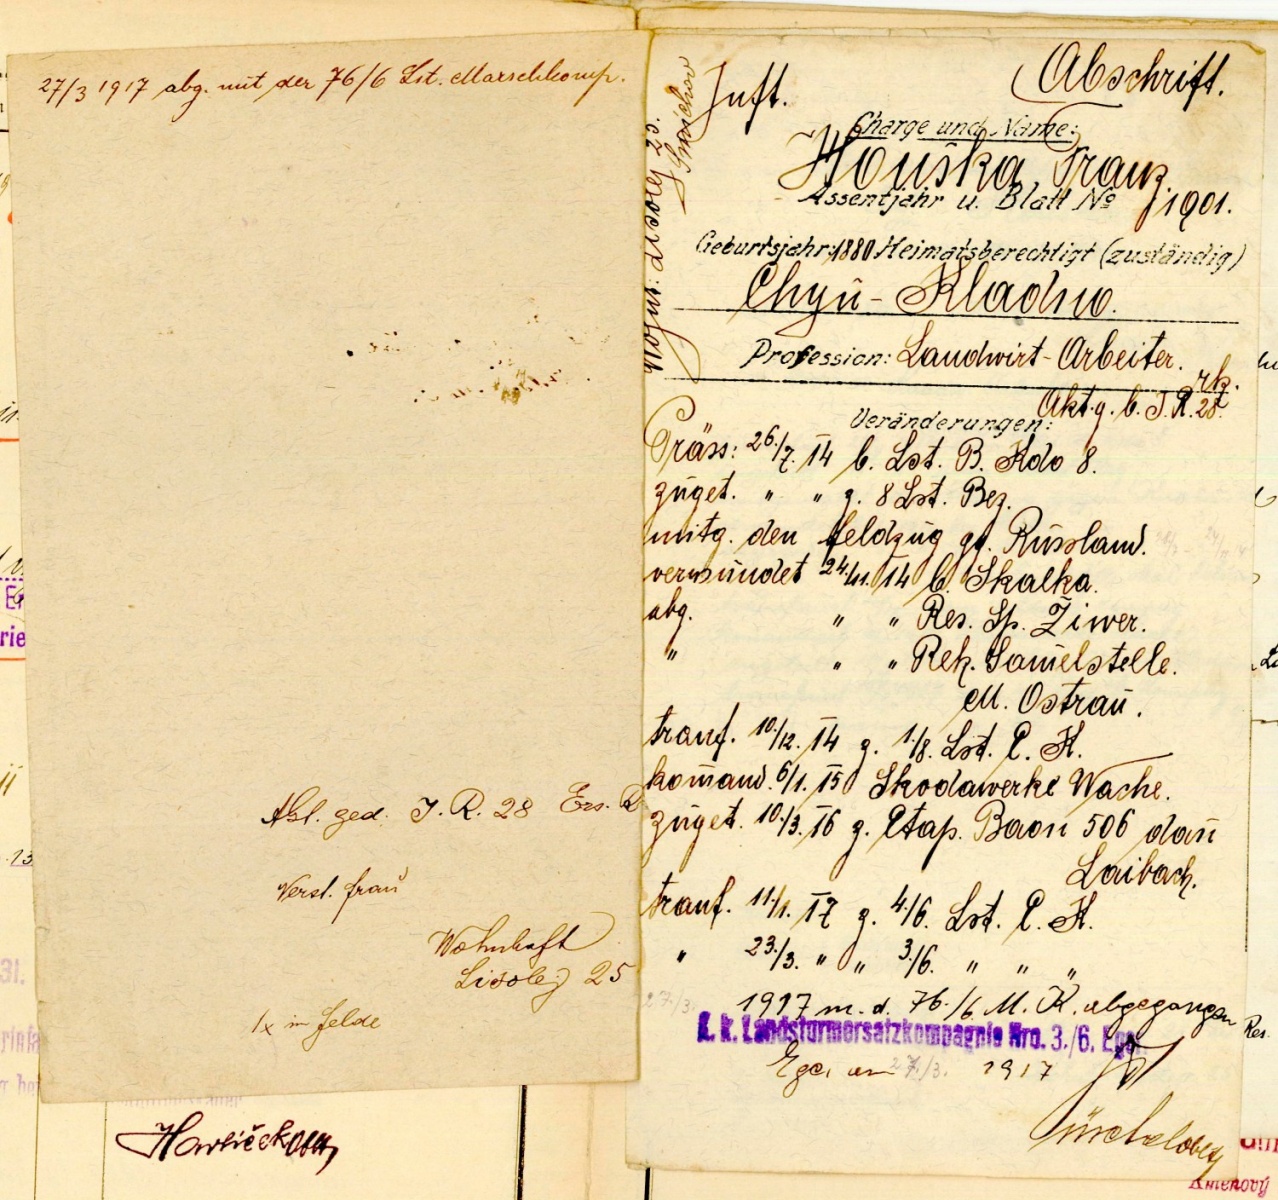 27/3 1917 abg. mit der 76/6 Lst. Marschkomp.
Abt. ged. I. R. 28 Ers.
Verst. frau
Wohnhaft
Lisoley 25
1x im Felde
Havlíčkova
Wohnt: Lisoley 25.
Smichov
Inft.
Abschrift.
Charge und Name:
Houška Franz
Assentjahr u. Blatt No 1901.
Geburtsjahr: 1880 Heimatsberechtigt (zuständig)
Chyň - Kladno.
Profession: Landwirt-Arbeiter.
rk.
Akt. g. b. I. R. 28.
Veränderungen:
Präs: 26./7. 14 b. Lst. B. Kdo 8.
zuget. " " z. 8 Lst. Bez.
mitg. den Feldzug gg. Russland.
verwundet 24./11. 14 b. Skalka.
abg. " " Res. Sp. Ziwer.
" " " Rek. Sam̄elstelle.
M. Ostrau.
tranf. 10./12. 14 z. 1./8. Lst. E. K.
kom̄and. 6/1. 15 Skodawerke Wache.
zuget. 10./3. 16 z. Etap. Baon 506 dan̄
Laibach.
tranf. 11./1. 17 z. 4./6. Lst. E. K.
" 23./3. " " 3./6. " " "
27./3. 1917 m. d. 76./6 M. K. abgegangen
K. k. Landsturmersatzkompagnie Nro. 3./6. Eger.
Eger am 27./3. 1917
Res.